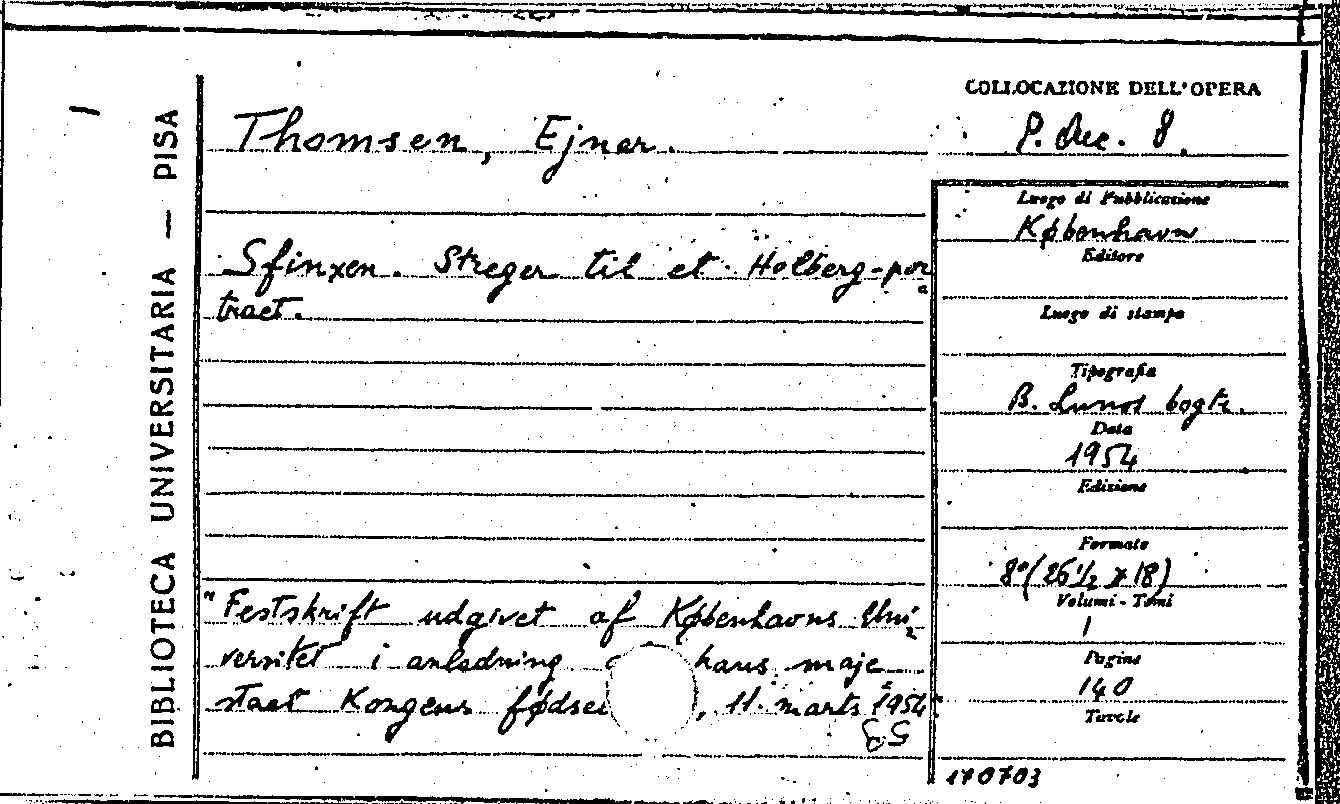 BIBLIOTECA UNIVERSITARIA — PISA
Thomsen, Ejnar.
Sfinxen. Streger til et Holberg-por=
traet.
"Festskrift udgivet af Københavns Uni=
versitet i anledning haus maje=
staet Kongens fødse , 11. marts 1954".
COLLOCAZIONE DELL'OPERA
P. duc. 8.
Luogo di Pubblicazione
København
Editore
Luogo di stampa
Tipografia
B. Lunos bogtr.
Data
1954
Edizione
Formato
8°(26 1/2 x 18)
Volumi - Tomi
1
Pagine
140
Tavole
170703